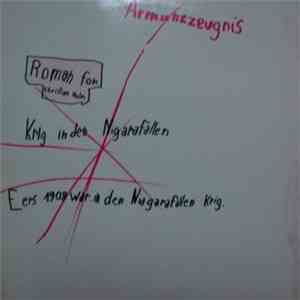 Armutszeugnis
Roman fon
Krig in den Nigarafällen
Eers 1908 war in den Niagarafälen Krig.